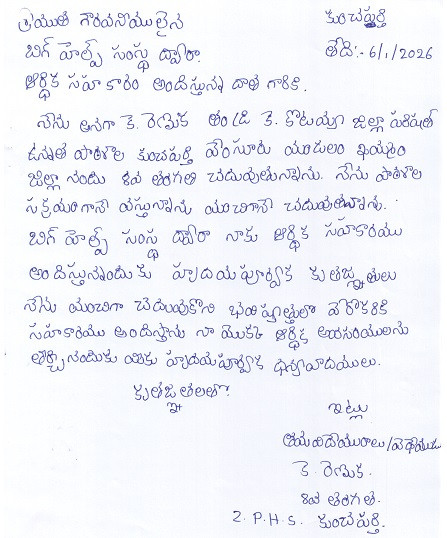 శ్రీయుత గౌరవనీయులైన
కుంచపర్తి
బిగ్ హెల్ప్ సంస్థ ద్వారా.
తేది:- 6/1/2026
ఆర్థిక సహకారం అందిస్తున్న దాత గారికి.
నేను అనగా కె. రేణుక తం/డి కె. కోటయ్య జిల్లా పరిషత్
ఉన్నత పాఠశాల కుంచపర్తి మండలం ఖమ్మం
జిల్లా నందు 8వ తరగతి చదువుతున్నాను. నేను పాఠశాల
సక్రమంగానే వస్తున్నాను మంచిగానే చదువుతున్నాను.
బిగ్ హెల్ప్ సంస్థ ద్వారా నాకు ఆర్థిక సహకారము
అందిస్తున్నందుకు హృదయపూర్వక కృతజ్ఞతలు
నేను మంచిగా చదువుకొని భవిష్యత్తులో వేరొకరికి
సహకారము అందిస్తాను నా యొక్క ఆర్థిక అవసరములను
తీర్చినందుకు మీకు హృదయపూర్వక ధన్యవాదములు.
కృతజ్ఞతలతో.
ఇట్లు
తమ విదేయురాలు/విధేయుడు
కె. రేణుక.
8వ తరగతి.
Z. P. H. S. కుంచపర్తి.